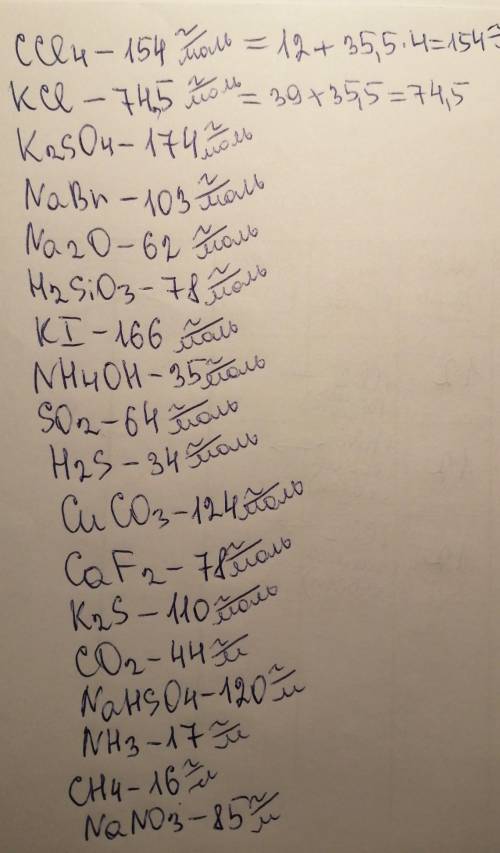 CCl4 – 154 г/моль = 12 + 35,5 · 4 = 154 г
KCl – 74,5 г/моль = 39 + 35,5 = 74,5
K2SO4 – 174 г/моль
NaBr – 103 г/моль
Na2O – 62 г/моль
H2SiO3 – 78 г/моль
KI – 166 г/моль
NH4OH – 35 г/моль
SO2 – 64 г/моль
H2S – 34 г/моль
CuCO3 – 124 г/моль
CaF2 – 78 г/моль
K2S – 110 г/моль
CO2 – 44 г/м
NaHSO4 – 120 г/м
NH3 – 17 г/м
CH4 – 16 г/м
NaNO3 – 85 г/м